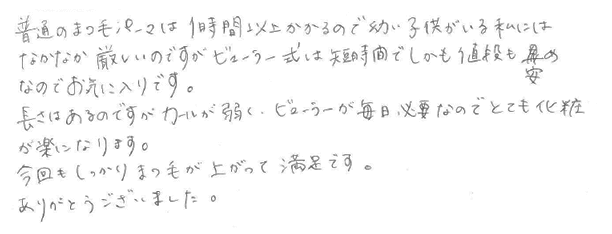 普通のまつ毛パーマは1時間以上かかるので幼い子供がいる私には
なかなか厳しいのですがビューラー式は短時間でしかも値段も安め
なのでお気に入りです。
長さはあるのですがカールが弱く、ビューラーが毎日必要なのでとても化粧
が楽になります。
今回もしっかりまつ毛が上がって満足です。
ありがとうございました。